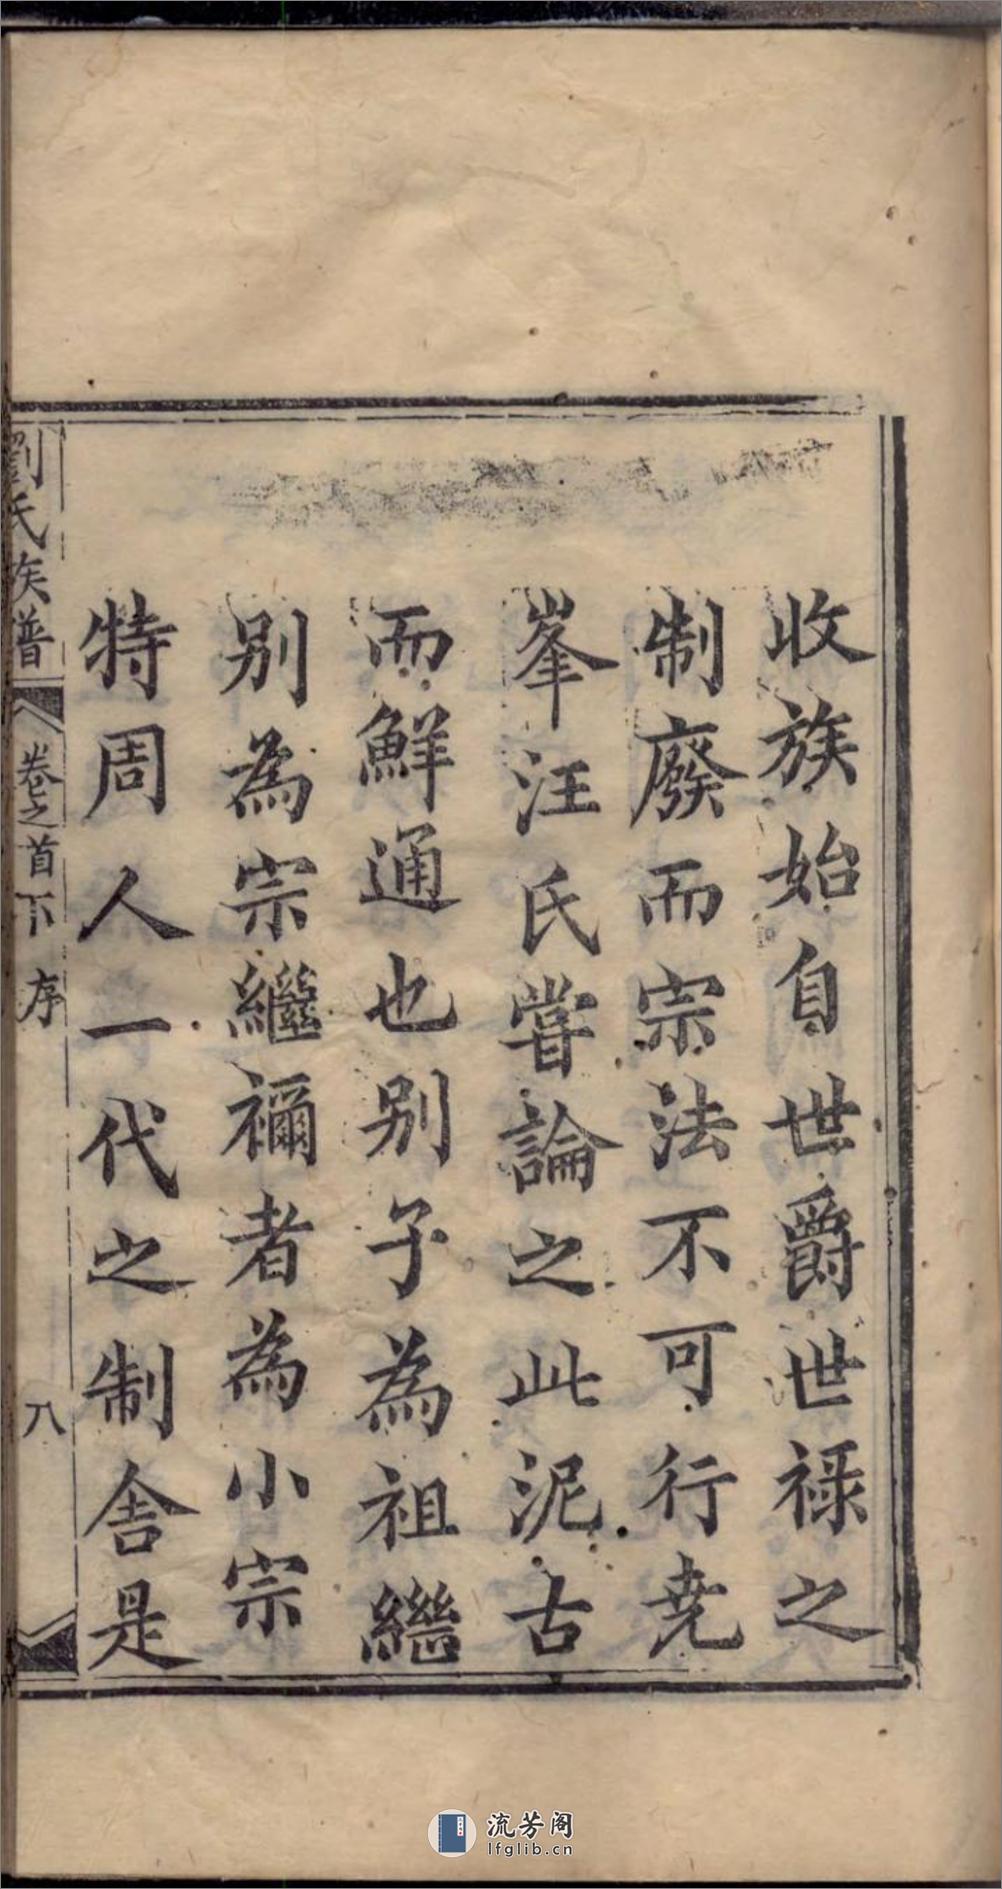 收族始自世爵世祿之
制廢而宗法不可行堯
峯汪氏嘗論之此泥古
而鮮通也别子為祖繼
别為宗繼禰者為小宗
特周人一代之制舍是
劉氏族譜
卷之首下 序
八
流芳阁
lfglib.cn